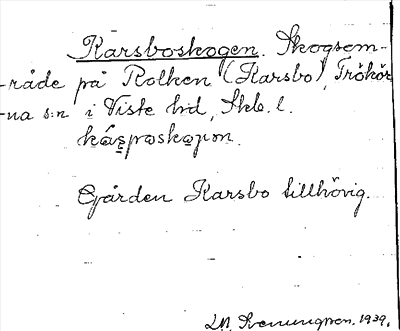 Karsboskogen. Skogsom-
råde på Rolken (Karsbo), Trökör
na s:n i Viste hd, Skb. l.
Gården Karsbo tillhörig.
1939.